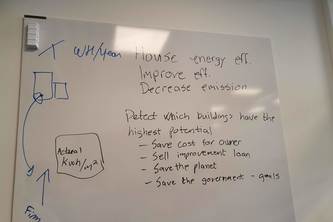 WH/Year House energy eff.
Improve eff.
Decrease emission
Detect which buildings have the
highest potential
- Save cost for owner
- Sell improvement loan
- Save the planet
- Save the government - goals
Actual
KWh/m²
Firm